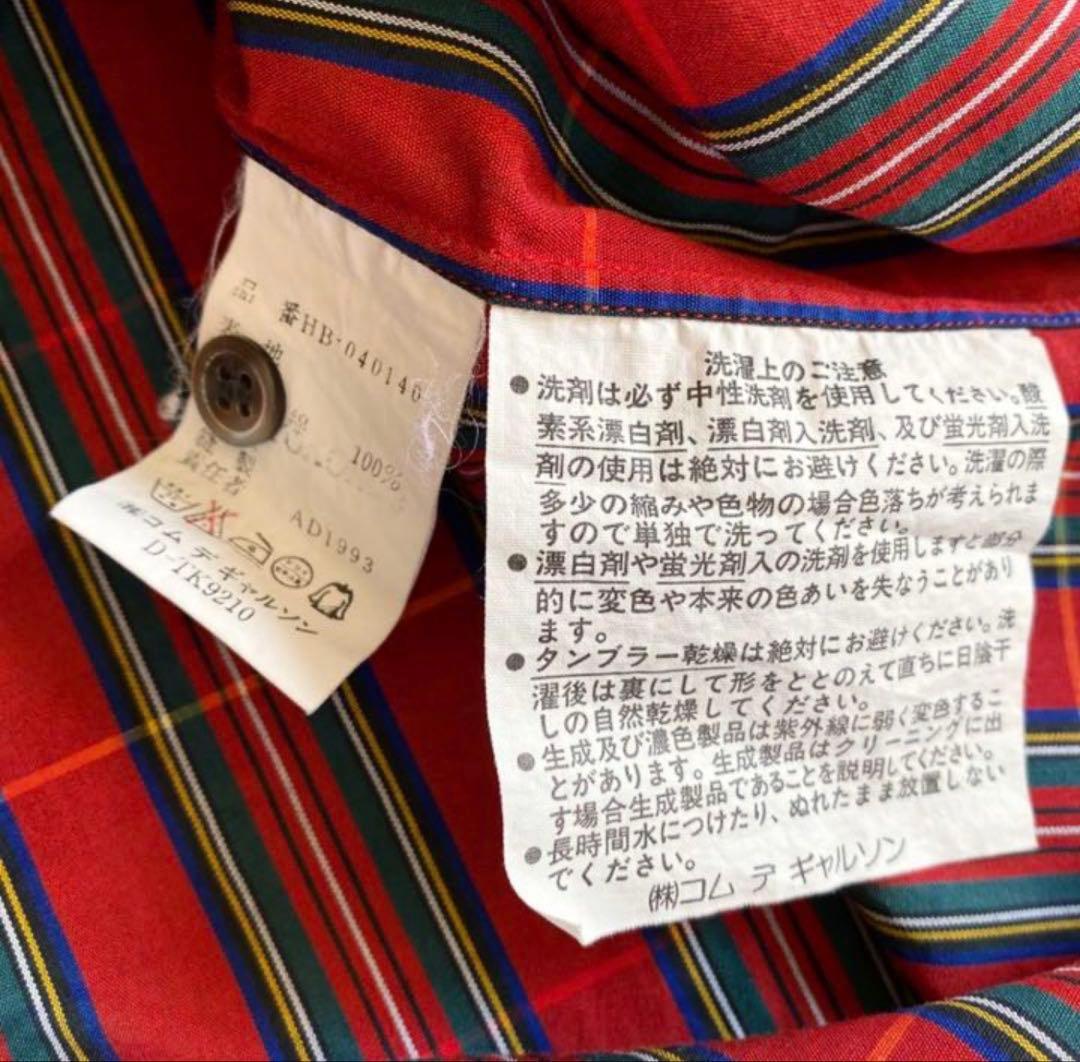 品 番HB-040146
表 地
綿 100%
縫製
責任者
AD1993
㈱コム デ ギャルソン
D-TK9210
洗濯上のご注意
●洗剤は必ず中性洗剤を使用してください。酸
素系漂白剤、漂白剤入洗剤、及び蛍光剤入洗
剤の使用は絶対にお避けください。洗濯の際
多少の縮みや色物の場合色落ちが考えられま
すので単独で洗ってください。
●漂白剤や蛍光剤入の洗剤を使用しますと部分
的に変色や本来の色あいを失なうことがあり
ます。
●タンブラー乾燥は絶対にお避けください。洗
濯後は裏にして形をととのえて直ちに日陰干
しの自然乾燥してください。
●生成及び濃色製品は紫外線に弱く変色するこ
とがあります。生成製品はクリーニングに出
す場合生成製品であることを説明してください。
●長時間水につけたり、ぬれたまま放置しない
でください。
㈱コム デ ギャルソン